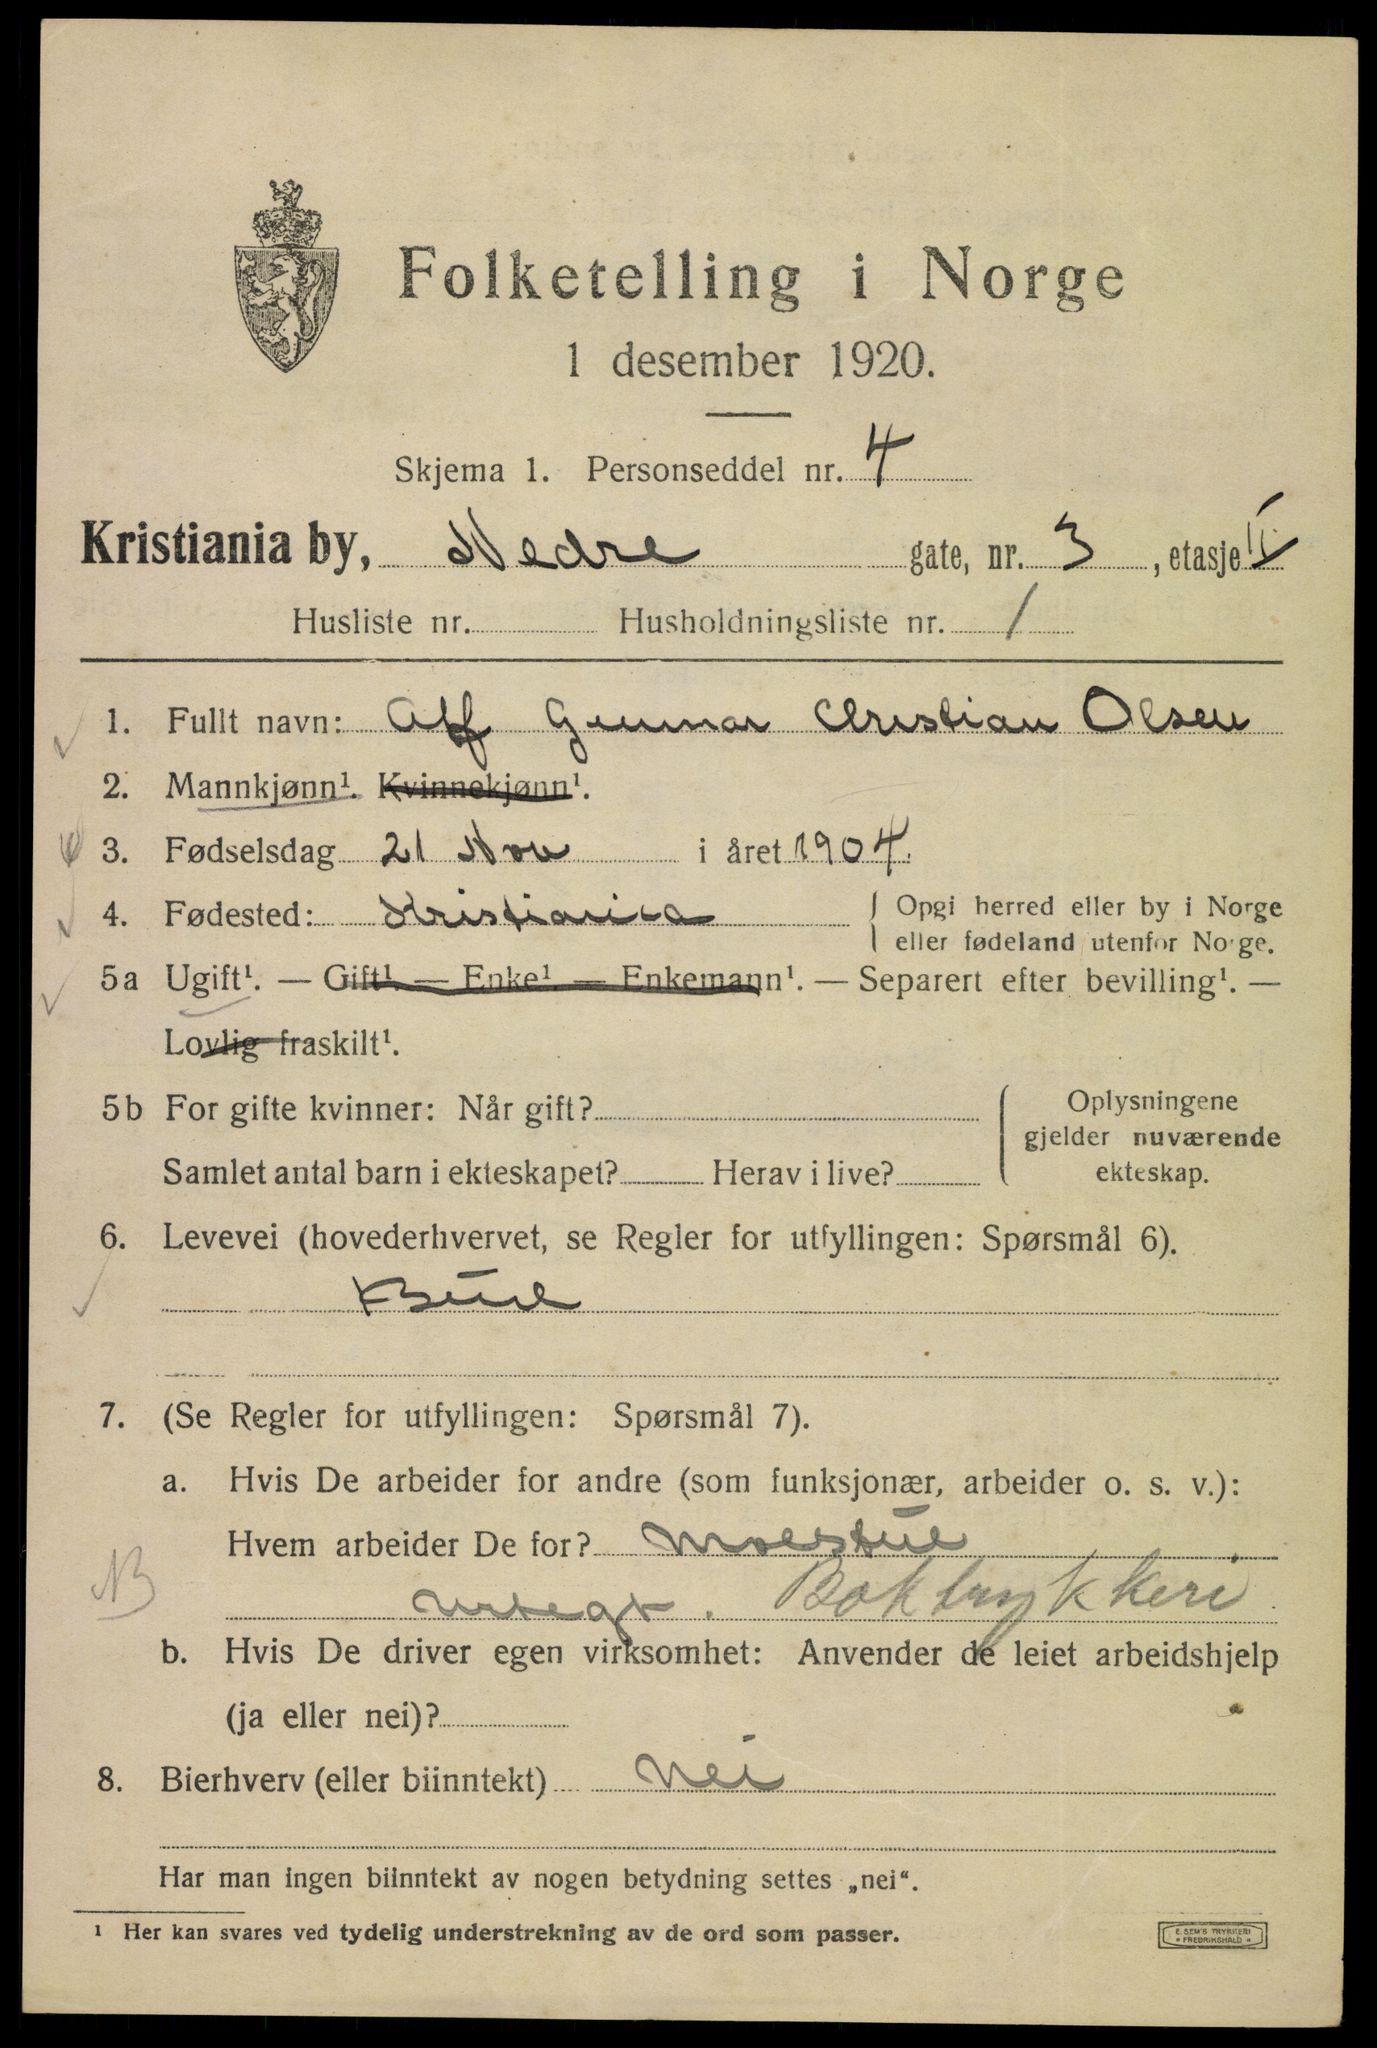 Folketelling i Norge
1 desember 1920.
Skjema 1. Personseddel nr. 4
Kristiania by, Nedre gate, nr. 3, etasje II
Husliste nr. Husholdningsliste nr. 1
1. Fullt navn: Alf Gunnar Christian Olsen
2. Mannkjønn¹. Kvinnekjønn¹.
3. Fødselsdag 21 Nov i året 1904.
4. Fødested: Kristiania { Opgi herred eller by i Norge
eller fødeland utenfor Norge.
5a Ugift¹. — Gift¹. — Enke¹. — Enkemann¹. — Separert efter bevilling¹. —
Lovlig fraskilt¹.
5b For gifte kvinner: Når gift? { Oplysningene
gjelder nuværende
Samlet antal barn i ekteskapet? Herav i live? ekteskap.
6. Levevei (hovederhvervet, se Regler for utfyllingen: Spørsmål 6).
7. (Se Regler for utfyllingen: Spørsmål 7).
a. Hvis De arbeider for andre (som funksjonær, arbeider o. s. v.):
Hvem arbeider De for? Moestue
NB Urtegt. Boktrykkeri
b. Hvis De driver egen virksomhet: Anvender de leiet arbeidshjelp
(ja eller nei)?
8. Bierhverv (eller biinntekt) Nei
Har man ingen biinntekt av nogen betydning settes „nei“.
¹ Her kan svares ved tydelig understrekning av de ord som passer.
E. SEM'S TRYKKERI
• FREDRIKSHALD •